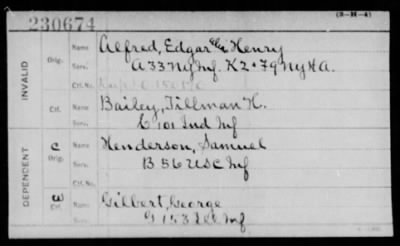 (3-H-4)
230674
INVALID
Orig.
Name Alfred, Edgar Henry
Serv. A 33 Ny Inf. K 2 & 79 Ny H A.
Ctf. No.
Ctf.
Name Bailey, Tillman H.
Serv. E 101 Ind Inf
DEPENDENT
C
Orig.
Name Henderson, Samuel
Serv. B 56 USC Inf
Ctf. No.
W
Ctf.
Name Gilbert, George
Serv. G 153 Ill Inf